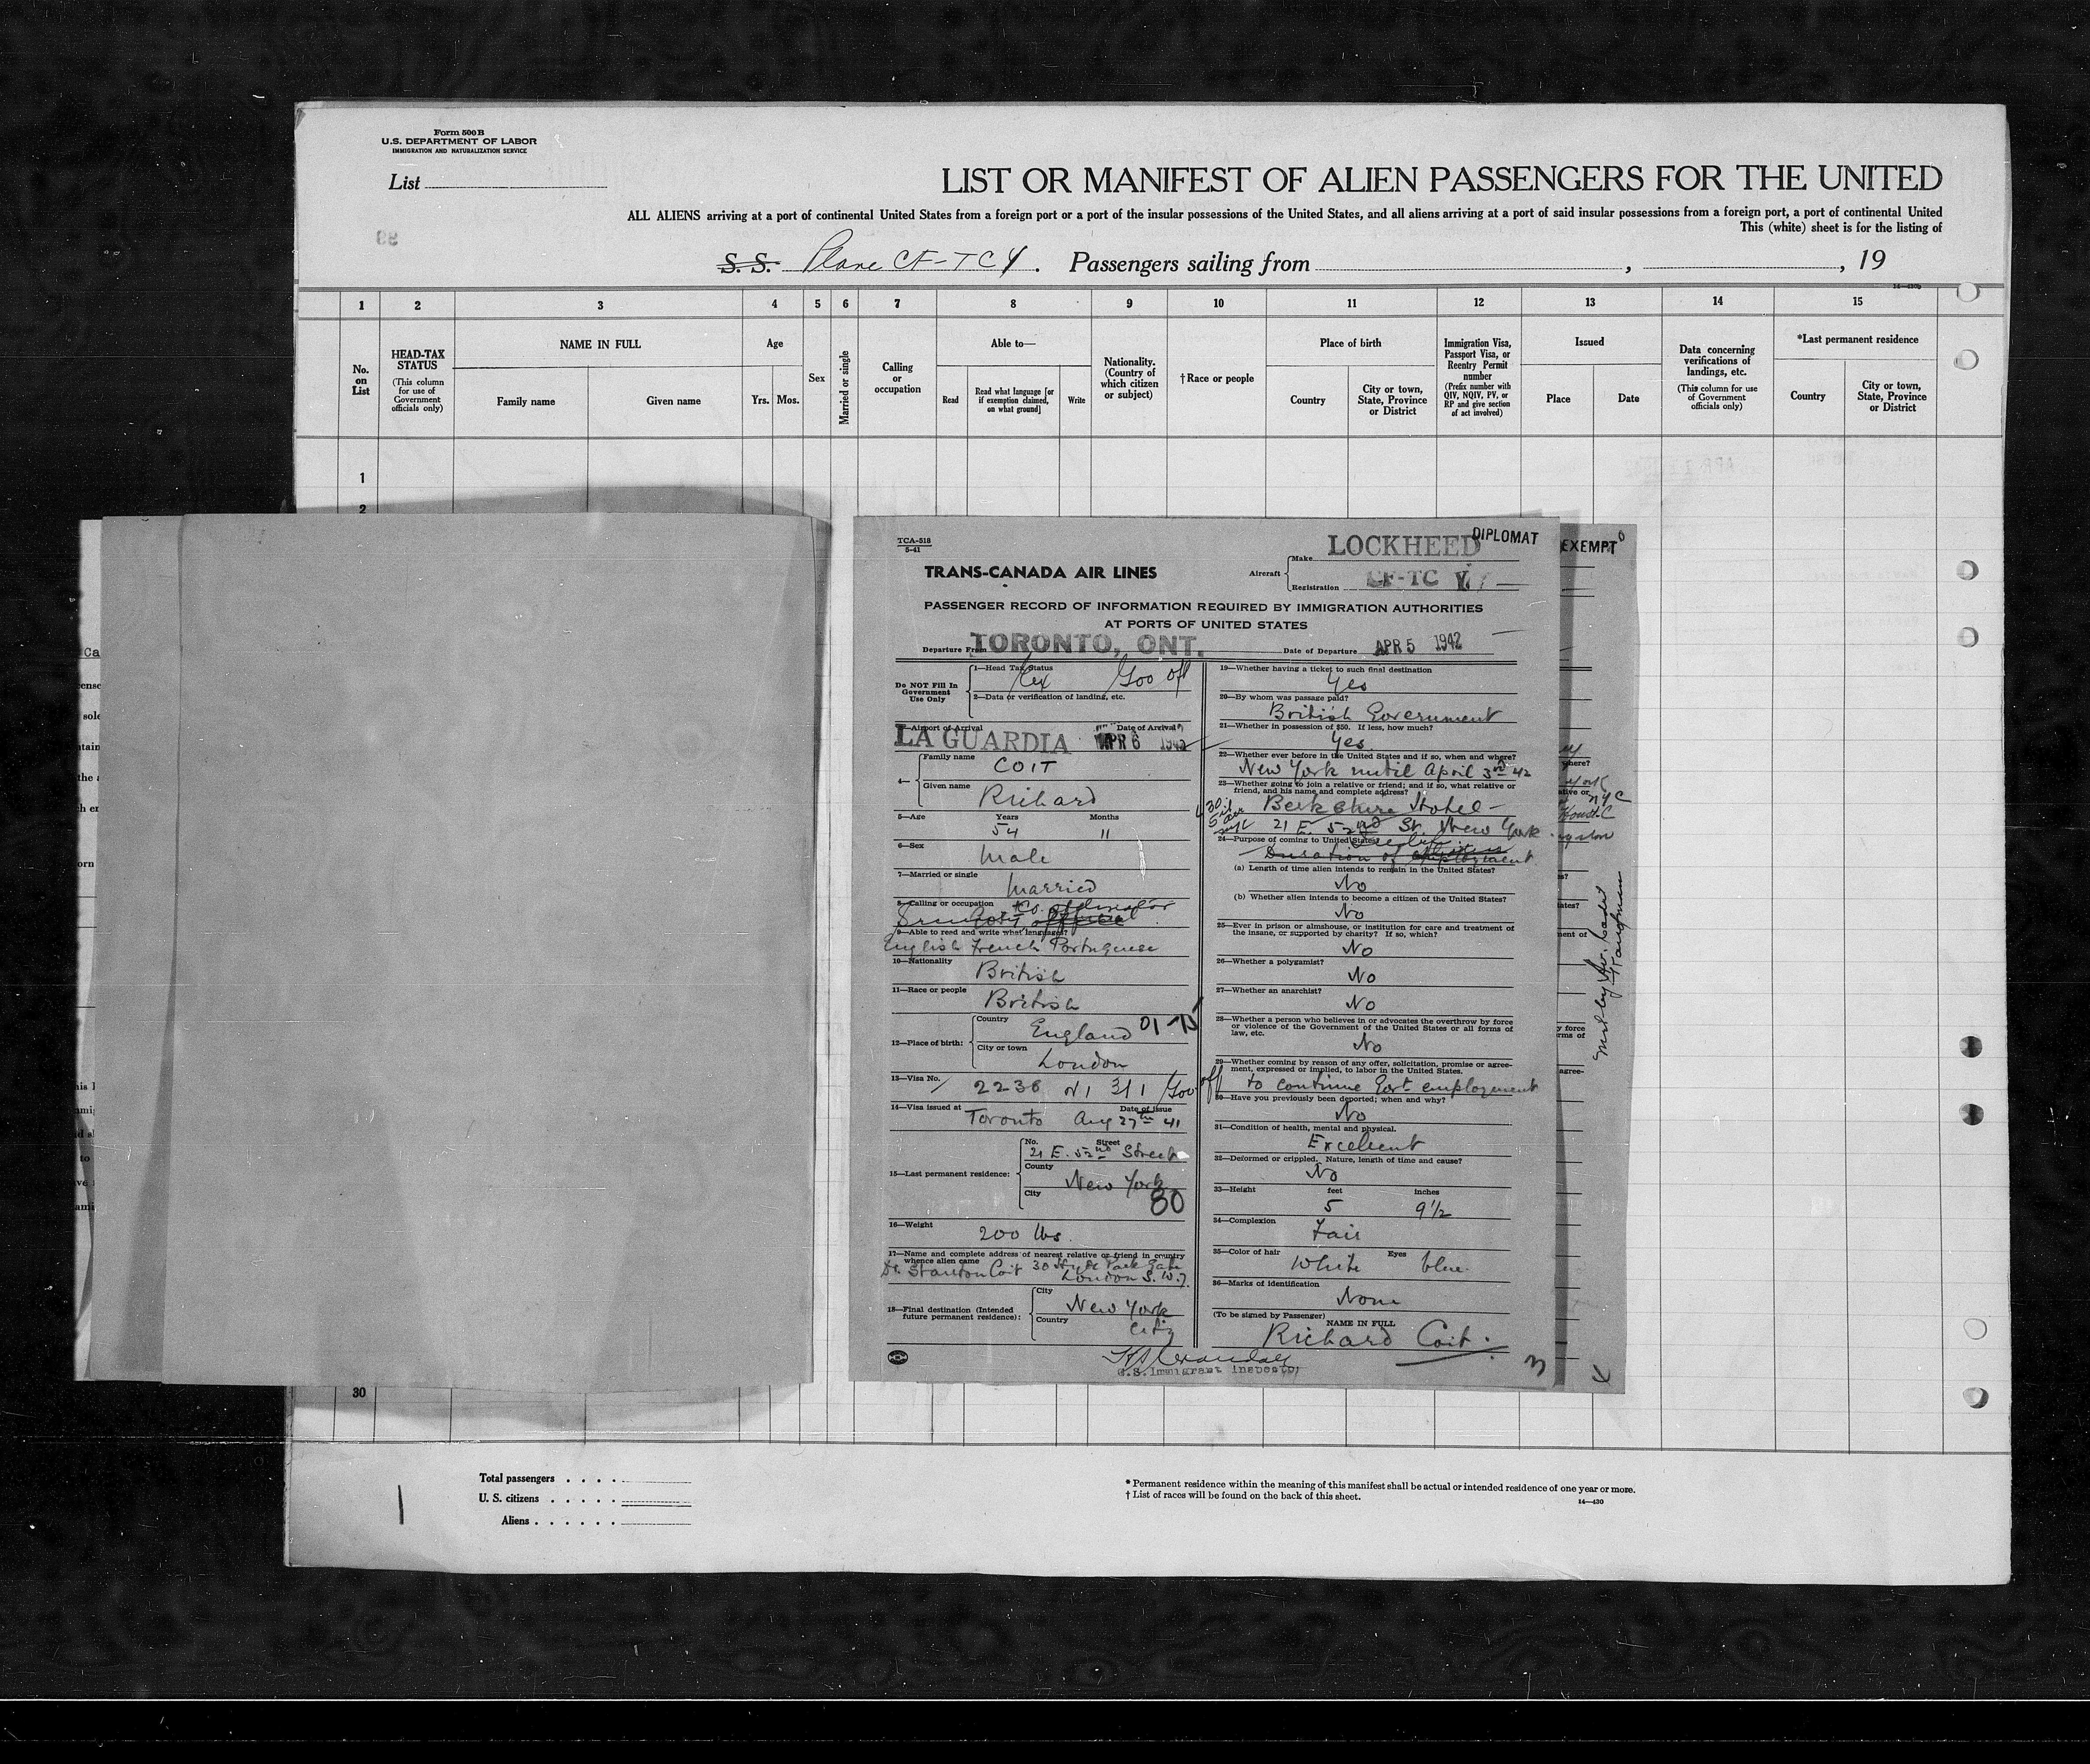 Form 500B
U.S. DEPARTMENT OF LABOR
IMMIGRATION AND NATURALIZATION SERVICE
List
LIST OR MANIFEST OF ALIEN PASSENGERS FOR THE UNITED
ALL ALIENS arriving at a port of continental United States from a foreign port or a port of the insular possessions of the United States, and all aliens arriving at a port of said insular possessions from a foreign port, a port of continental United
This (white) sheet is for the listing of
S. S. Plane CF-TCY. Passengers sailing from , , 19
1 2 3 4 5 6 7 8 9 10 11 12 13 14 15
No. on List
HEAD-TAX STATUS
(This column for use of Government officials only)
NAME IN FULL
Family name
Given name
Age
Yrs. Mos.
Sex
Married or single
Calling or occupation
Able to—
Read
Read what language [or if exemption claimed, on what ground]
Write
Nationality. (Country of which citizen or subject)
†Race or people
Place of birth
Country
City or town, State, Province or District
Immigration Visa, Passport Visa, or Reentry Permit number
(Prefix number with QIV, NQIV, PV, or RP and give section of act involved)
Issued
Place
Date
Data concerning verifications of landings, etc.
(This column for use of Government officials only)
*Last permanent residence
Country
City or town, State, Province or District
1
2
TCA-518
5-41
TRANS-CANADA AIR LINES
Aircraft
Make LOCKHEED
DIPLOMAT
EXEMPT
Registration CF-TC Y
PASSENGER RECORD OF INFORMATION REQUIRED BY IMMIGRATION AUTHORITIES
AT PORTS OF UNITED STATES
Departure From TORONTO, ONT.
Date of Departure APR 5 1942
Do NOT Fill In Government Use Only
1—Head Tax Status
2—Data or verification of landing, etc.
3—Airport of Arrival LA GUARDIA
Date of Arrival APR 6 1942
4—
Family name COIT
Given name Richard
5—Age Years 54 Months 11
6—Sex Male
7—Married or single Married
8—Calling or occupation
9—Able to read and write what language?
English French Portuguese
10—Nationality British
11—Race or people British
12—Place of birth:
Country England
City or town London
13—Visa No. 2236
14—Visa issued at Toronto
Date of issue Aug 27th 41
15—Last permanent residence:
No. Street 21 E. 52nd Street
County
New York
City
80
16—Weight 200 lbs.
17—Name and complete address of nearest relative or friend in country whence alien came
Dr. Stanton Coit 30 Hyde Park Gate
London S.W.7.
18—Final destination (Intended future permanent residence):
City New York
Country City
19—Whether having a ticket to such final destination
Yes
20—By whom was passage paid?
British Government
21—Whether in possession of $50. If less, how much?
Yes
22—Whether ever before in the United States and if so, when and where?
New York until April 3rd 42
23—Whether going to join a relative or friend; and if so, what relative or friend, and his name and complete address?
Berkshire Hotel -
21 E. 52nd St. New York
24—Purpose of coming to United States?
Duration of employment
(a) Length of time alien intends to remain in the United States?
No
(b) Whether alien intends to become a citizen of the United States?
No
25—Ever in prison or almshouse, or institution for care and treatment of the insane, or supported by charity? If so, which?
No
26—Whether a polygamist?
No
27—Whether an anarchist?
No
28—Whether a person who believes in or advocates the overthrow by force or violence of the Government of the United States or all forms of law, etc.
No
29—Whether coming by reason of any offer, solicitation, promise or agreement, expressed or implied, to labor in the United States.
to continue Govt employment
30—Have you previously been deported; when and why?
No
31—Condition of health, mental and physical.
Excellent
32—Deformed or crippled. Nature, length of time and cause?
No
33—Height feet 5 inches 9½
34—Complexion Fair
35—Color of hair White Eyes blue
36—Marks of identification
None
(To be signed by Passenger)
NAME IN FULL
Richard Coit.
U.S. Immigrant Inspector
30
Total passengers
U. S. citizens
Aliens
* Permanent residence within the meaning of this manifest shall be actual or intended residence of one year or more.
† List of races will be found on the back of this sheet.
14—430